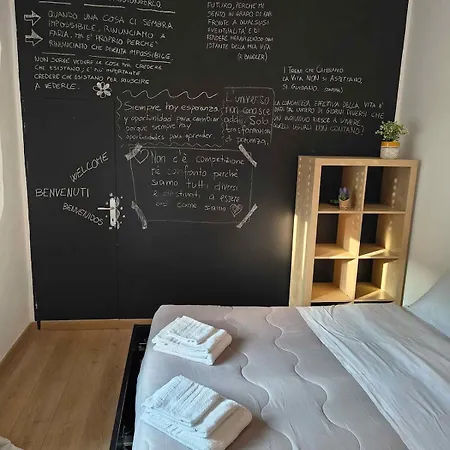 QUANDO UNA COSA CI SEMBRA
IMPOSSIBILE, RINUNCIAMO A
FARLA, MA È PROPRIO PERCHÉ
RINUNCIAMO CHE DIVENTA IMPOSSIBILE.
NON SERVE VEDERE LE COSE PER CREDERE
CHE ESISTANO, È PIÙ IMPORTANTE
CREDERE CHE ESISTANO PER RIUSCIRE
A VEDERLE.
FUTURO, PERCHÉ MI
SENTO IN GRADO DI FAR
FRONTE A QUALSIASI
EVENTUALITÀ E DI
RENDERE MERAVIGLIOSO OGNI
ISTANTE DELLA MIA VITA
(R. BANDLER)
I TRENI CHE CAMBIANO
LA VITA NON SI ASPETTANO,
SI GUIDANO.
LA LUNGHEZZA EFFETTIVA DELLA VITA È
DATA DAL NUMERO DI GIORNI DIVERSI CHE
UN INDIVIDUO RIESCE A VIVERE.
QUELLI UGUALI NON CONTANO!
Siempre hay esperanza
y oportunidad para cambiar
porque siempre hay
oportunidades para aprender.
L'universo
non conosce
addii. Solo
trasformazioni
Non c'è competizione
né confronto perché
siamo tutti diversi
e destinati a essere
come siamo
WELCOME
BENVENUTI
BIENVENIDOS